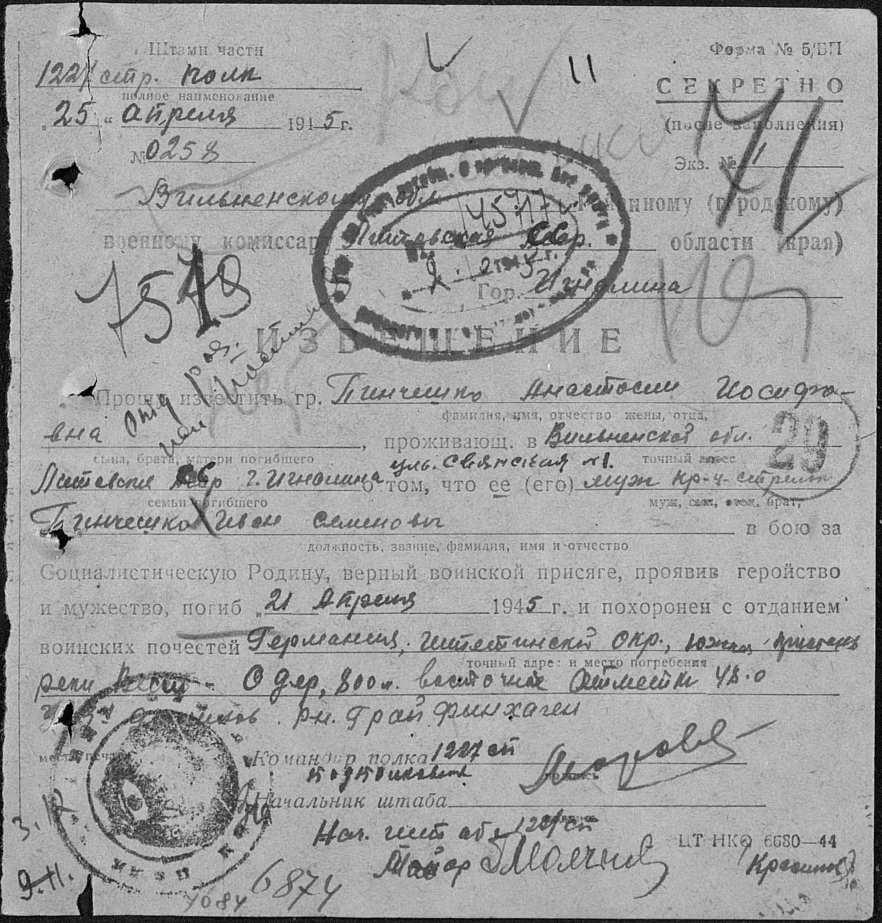 Штамп части
Форма № 5/БП
1227 стр. полк
полное наименование
СЕКРЕТНО
"25" апреля 1945 г.
(после заполнения)
№ 0258
Экз. № 1
Вильненскому обл. (городскому)
военному комиссару Литовская ССР. области (края)
Гор. Игналина
45717
7579
ИЗВЕЩЕНИЕ
Прошу известить гр. Пинчешко Анастасии Иосифо-
фамилия, имя, отчество жены, отца,
вна, проживающ. в Вильненской обл.
сына, брата, матери погибшего точный адрес
29
Литовская ССР г. Игналина уль. Свянская №1. о том, что ее (его) муж кр-ц-стрелок
семьи погибшего муж, сын, отец, брат,
Пинчешко Иван Семеновы в бою за
должность, звание, фамилия, имя и отчество
Социалистическую Родину, верный воинской присяге, проявив геройство
и мужество, погиб "21 Апреля 1945 г. и похоронен с отданием
воинских почестей Германия, Штетински окр., южная
точный адрес и место погребения
реки Вест - Одер, 800 м. восточнее отметки 4в.0
рн. Грайфинхаген
Командир полка 1227 сп
подполковник
Начальник штаба
Нач. штаба 1227 сп
ЦТ НКО 6680—44
Майор
9.11.
7084 6874